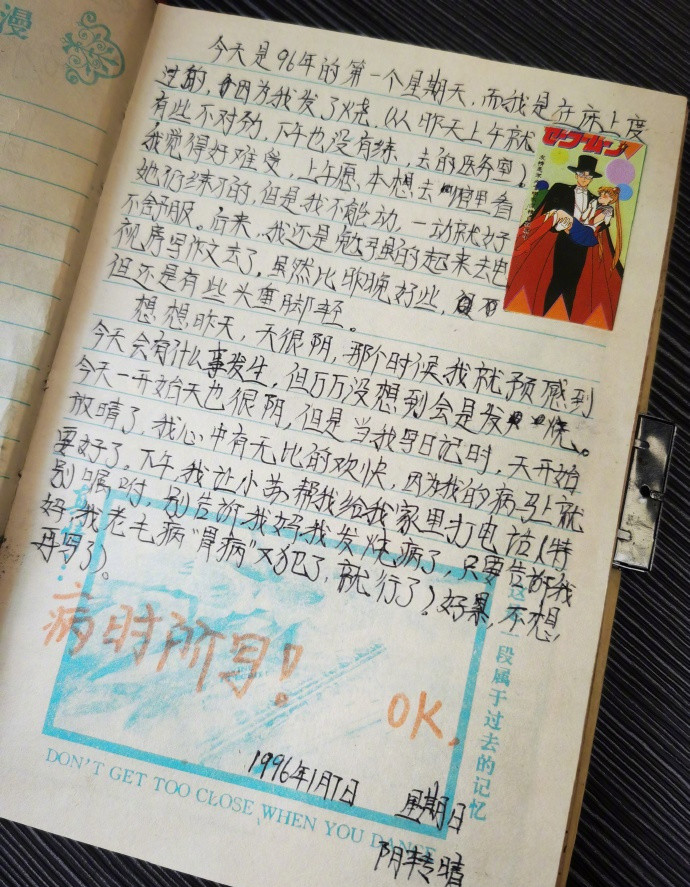 漫
今天是96年的第一个星期天，而我是在床上度
过的，因为我发了烧，（从昨天上午就
有些不对劲，下午也没有练，去的医务室）
我觉得好难受，上午愿、本想去馆里看
她们练习的，但是我不能动，一动就好
不舒服。后来，我还是勉强的起来去电
视房写作文去了，虽然比昨晚好些，
但还是有些头重脚轻。
想想昨天，天很阴，那个时候我就预感到
今天会有什么事发生，但万万没想到会是发烧。
今天一开始天也很阴，但是当我写日记时，天开始
放晴了，我心中有无比的欢快，因为我的病马上就
要好了。下午我让小苏帮我给我家里打电话（特
别嘱咐，别告诉我妈我发烧病了，只要告诉我
妈我老毛病"胃病"又犯了，就行了）好累，不想
再写了）。
セーラームーン
病时所写！
OK.
这一段属于过去的记忆
1996年1月7日 星期日
DON'T GET TOO CLOSE WHEN YOU DANCE
阴转晴